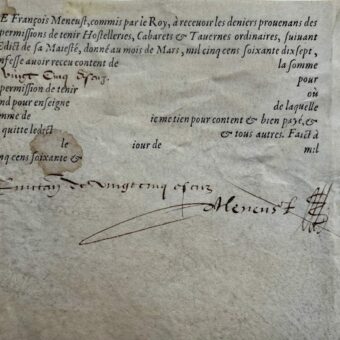 E François Meneust, commis par le Roy, à receuoir les deniers prouenans des
permissions de tenir Hostelleries, Cabarets & Tauernes ordinaires, suiuant
Edict de sa Maiesté, donné au mois de Mars, mil cinq cens soixante dixsept,
nfesse auoir receu content de la somme
vingt cinq escuz pour
permission de tenir où
nd pour enseigne de laquelle
mme de ie me tien pour content & bien payé, &
quitte ledict & tous autres. Faict à
le iour de mil
nq cens soixante &
Quittance de vingt cinq escuz
Meneust